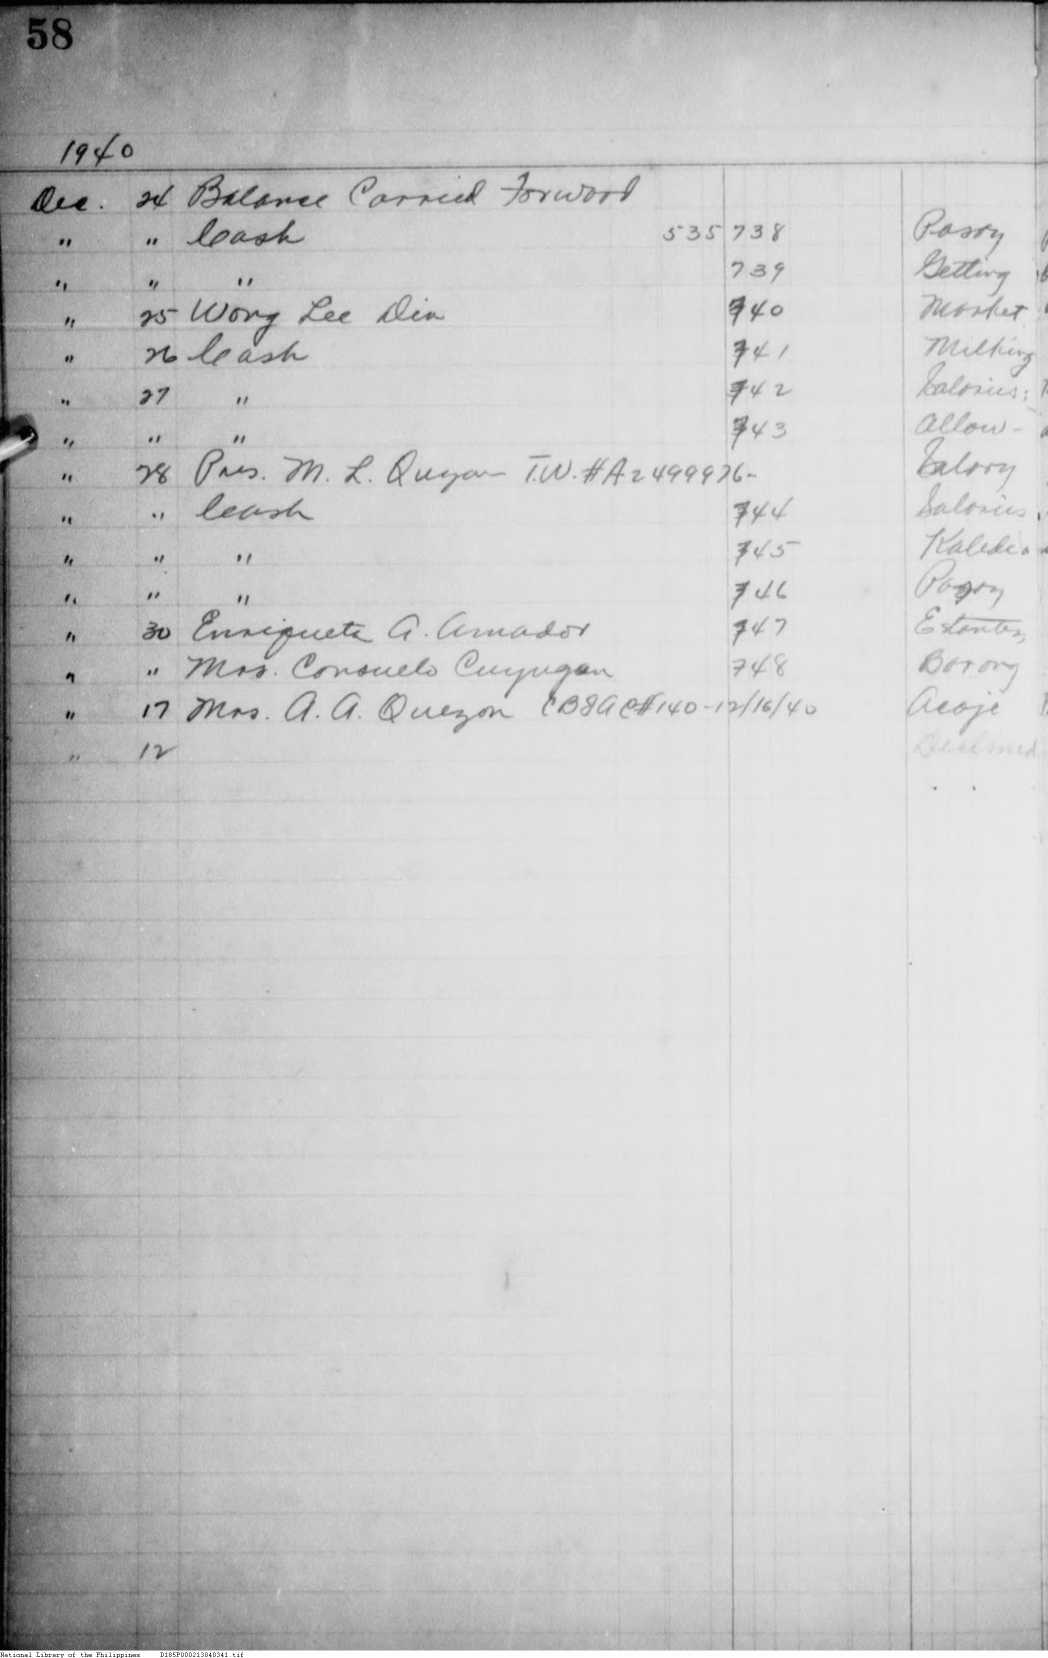 58
1940
Dec. 24 Balance Carried Forward
" " Cash 535 738 Pasay
" " " 739 Getting
" 25 Wong Lee Din 740 Market
" 26 Cash 741 Milking
" 27 " 742 Salaries;
" " " 743 Allow-
" 28 Pres. M. L. Quezon T.W. #A2499976- Salary
" " Cash 744 Salaries
" " " 745
" " " 746 Pasay
" 30 Enriqueta A. Amador 747
" " Mrs. Consuelo Cuyugan 748
" 17 Mrs. A. A. Quezon CB&A C#140-12/16/40 Acoje
" 12
National Library of the Philippines D185P000213040341.tif